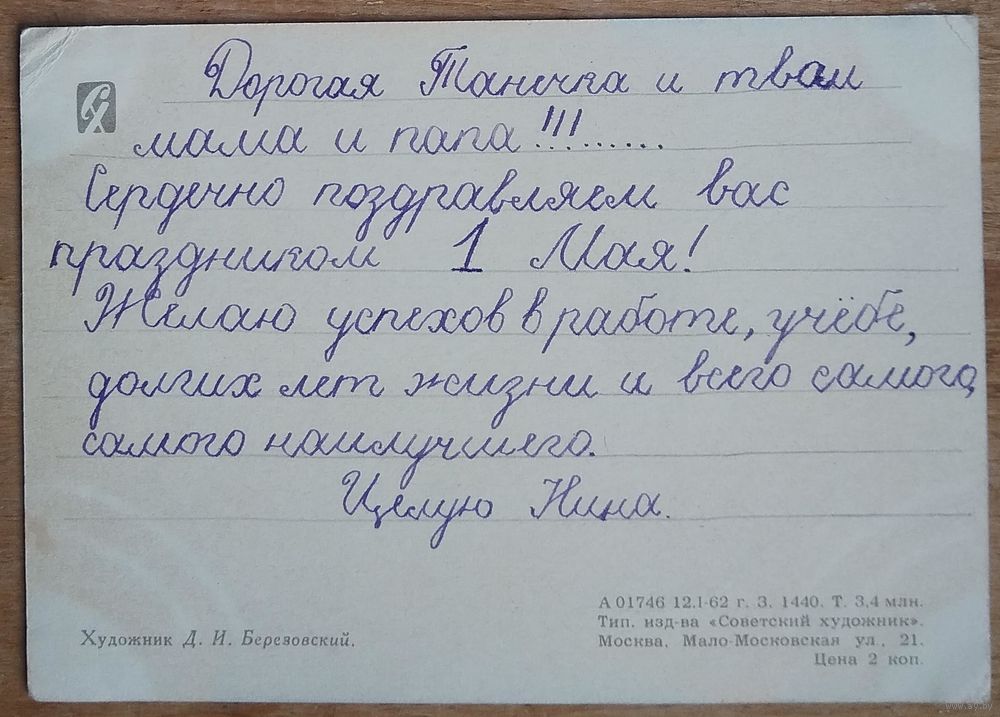 Дорогая Танечка и твои
мама и папа!!!.........
Сердечно поздравляем вас
праздником 1 Мая!
Желаю успехов в работе, учёбе,
долгих лет жизни и всего самого,
самого наилучшего.
Целую Нина.
А 01746 12.I-62 г. З. 1440. Т. 3,4 млн.
Тип. изд-ва «Советский художник».
Художник Д. И. Березовский.
Москва, Мало-Московская ул., 21.
Цена 2 коп.
www.ay.by